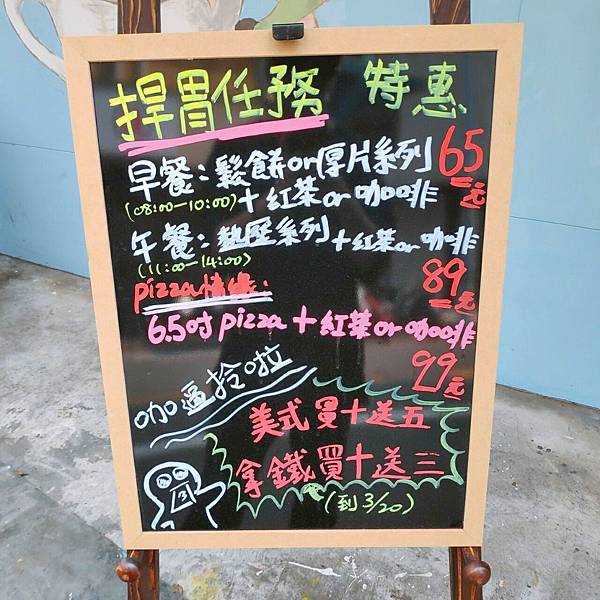 捍胃任務 特惠
早餐:鬆餅or厚片系列 65元
(08:00-10:00)+紅茶or咖啡
午餐:熱壓系列+紅茶or咖啡
(11:00-14:00) 89元
pizza情緣:
6.5吋pizza+紅茶or咖啡
99元
咖逼拎啦
美式買十送五
拿鐵買十送三
(到3/20)